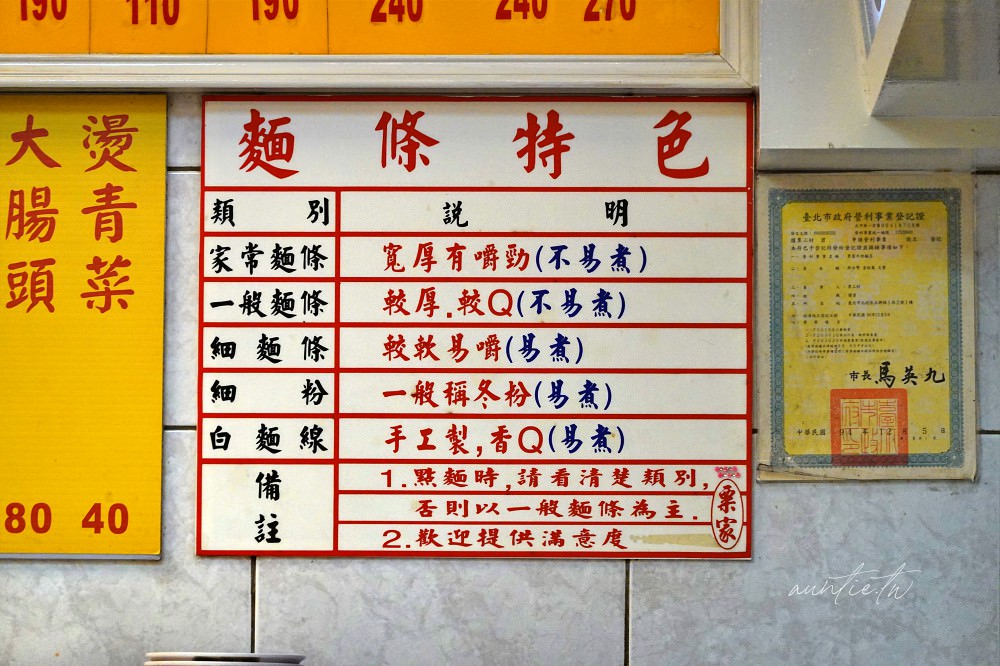 190 110 190 240 240 270
燙青菜 40
大腸頭 80
麵條特色
類別 說明
家常麵條 寬厚有嚼勁(不易煮)
一般麵條 較厚.較Q(不易煮)
細麵條 較軟易嚼(易煮)
細粉 一般稱冬粉(易煮)
白麵線 手工製,香Q(易煮)
備註 1.點麵時,請看清楚類別,
否則以一般麵條為主.
2.歡迎提供滿意度
粟家
臺北市政府營利事業登記證
市長 馬英九
中華民國
auntie.tw